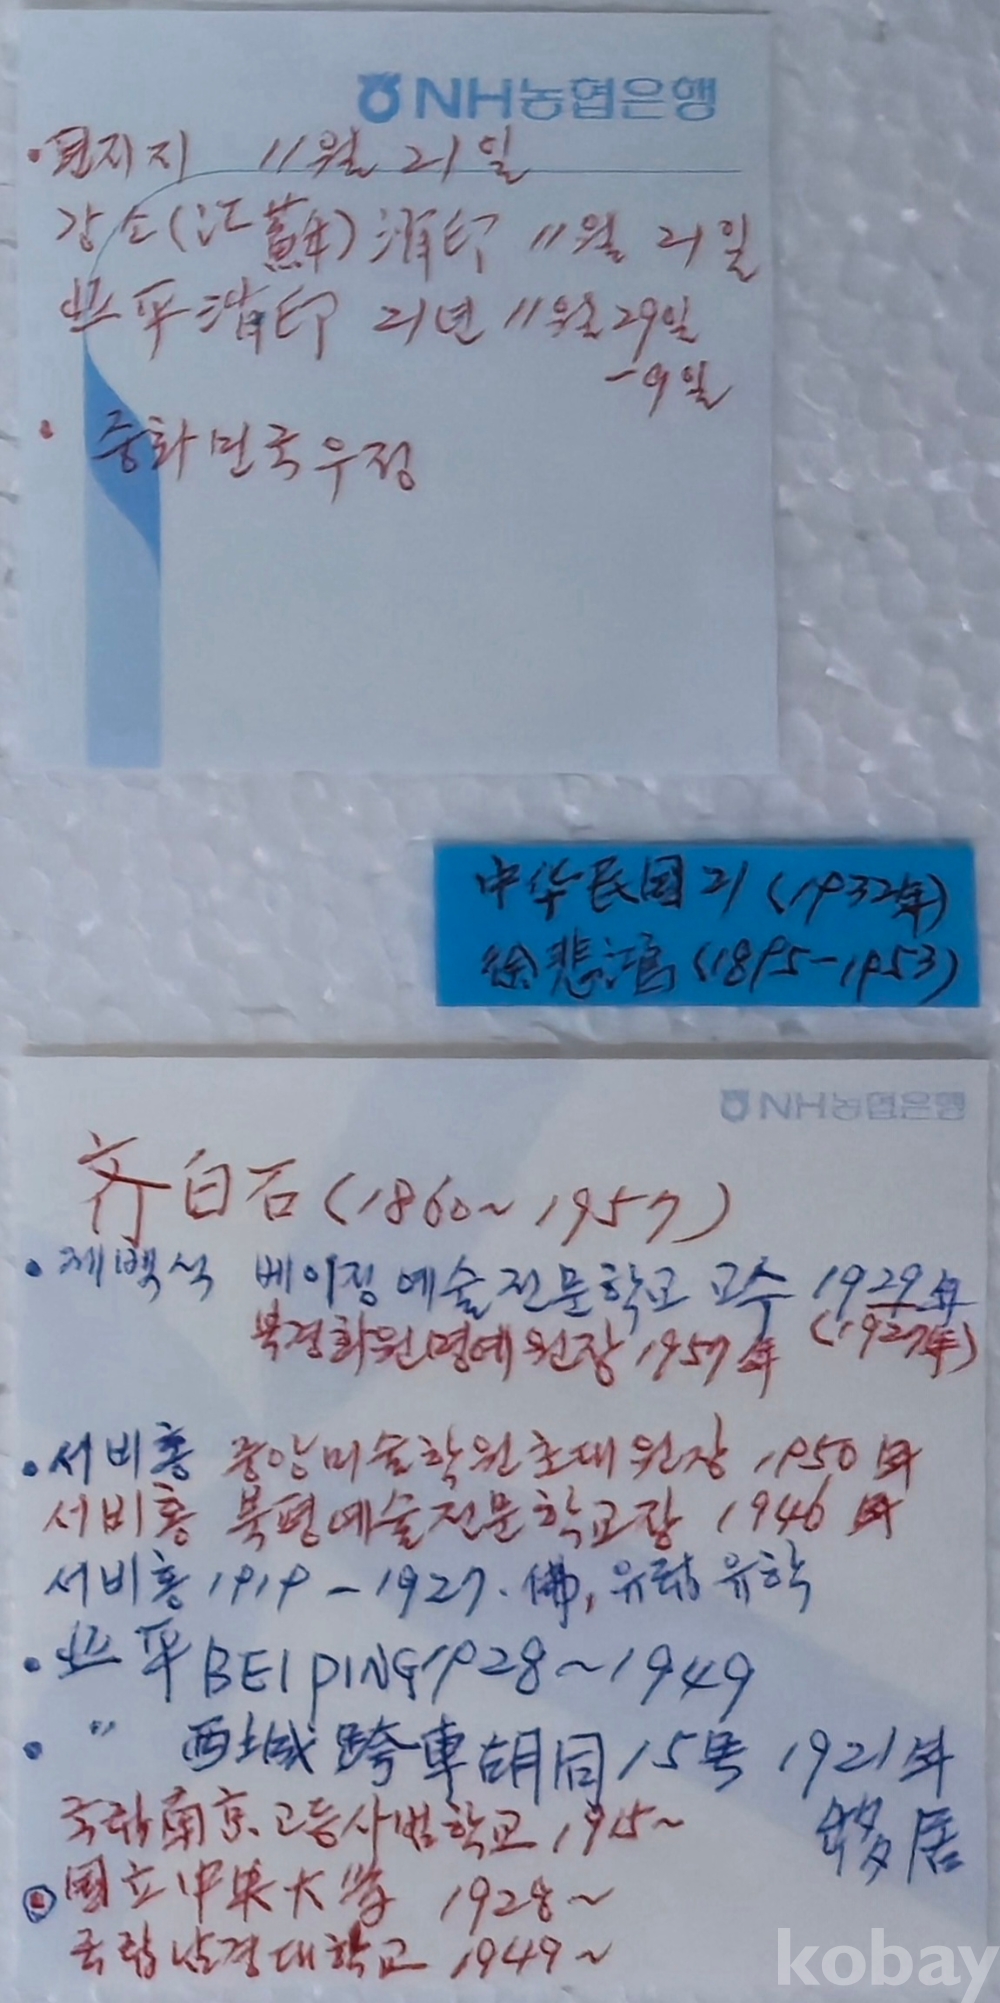 NH농협은행
• 편지지 11월 21일
강소(江蘇)消印 11월 21일
北平消印 21년 11월 29일
-9일
• 중화민국우정
中华民國21(1932年)
徐悲鴻(1895-1953)
NH농협은행
齐白石(1860~1957)
• 제백석 베이징예술전문학교 교수 1929年
북경화원명예원장 1957年 (1927年)
• 서비홍 중앙미술학원초대원장 1950年
서비홍 북평예술전문학교장 1946年
서비홍 1919-1927. 佛, 유럽유학
• 北平BEIPING1928~1949
• " 西城跨車胡同15号 1921年
移居
국립南京고등사범학교 1915~
国立中央大学 1928~
국립남경대학교 1949~
kobay